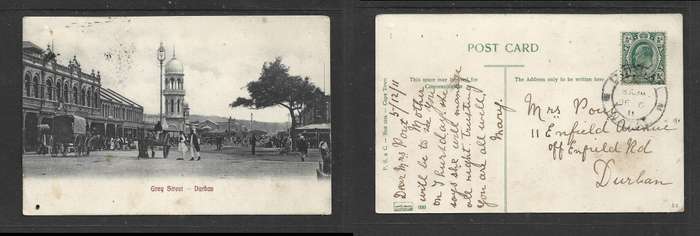 Grey Street - Durban
POST CARD
This space may be used for
Correspondence
The Address only to be written here.
P. S. & C. - Box
Cape Town
5/12/11
Dear Mrs
Mother
will be to the
on Thursday she
says she will manage
all night. Trusting
you are all well
Mary.
Mrs
11 Enfield Avenue
off Enfield Rd
Durban